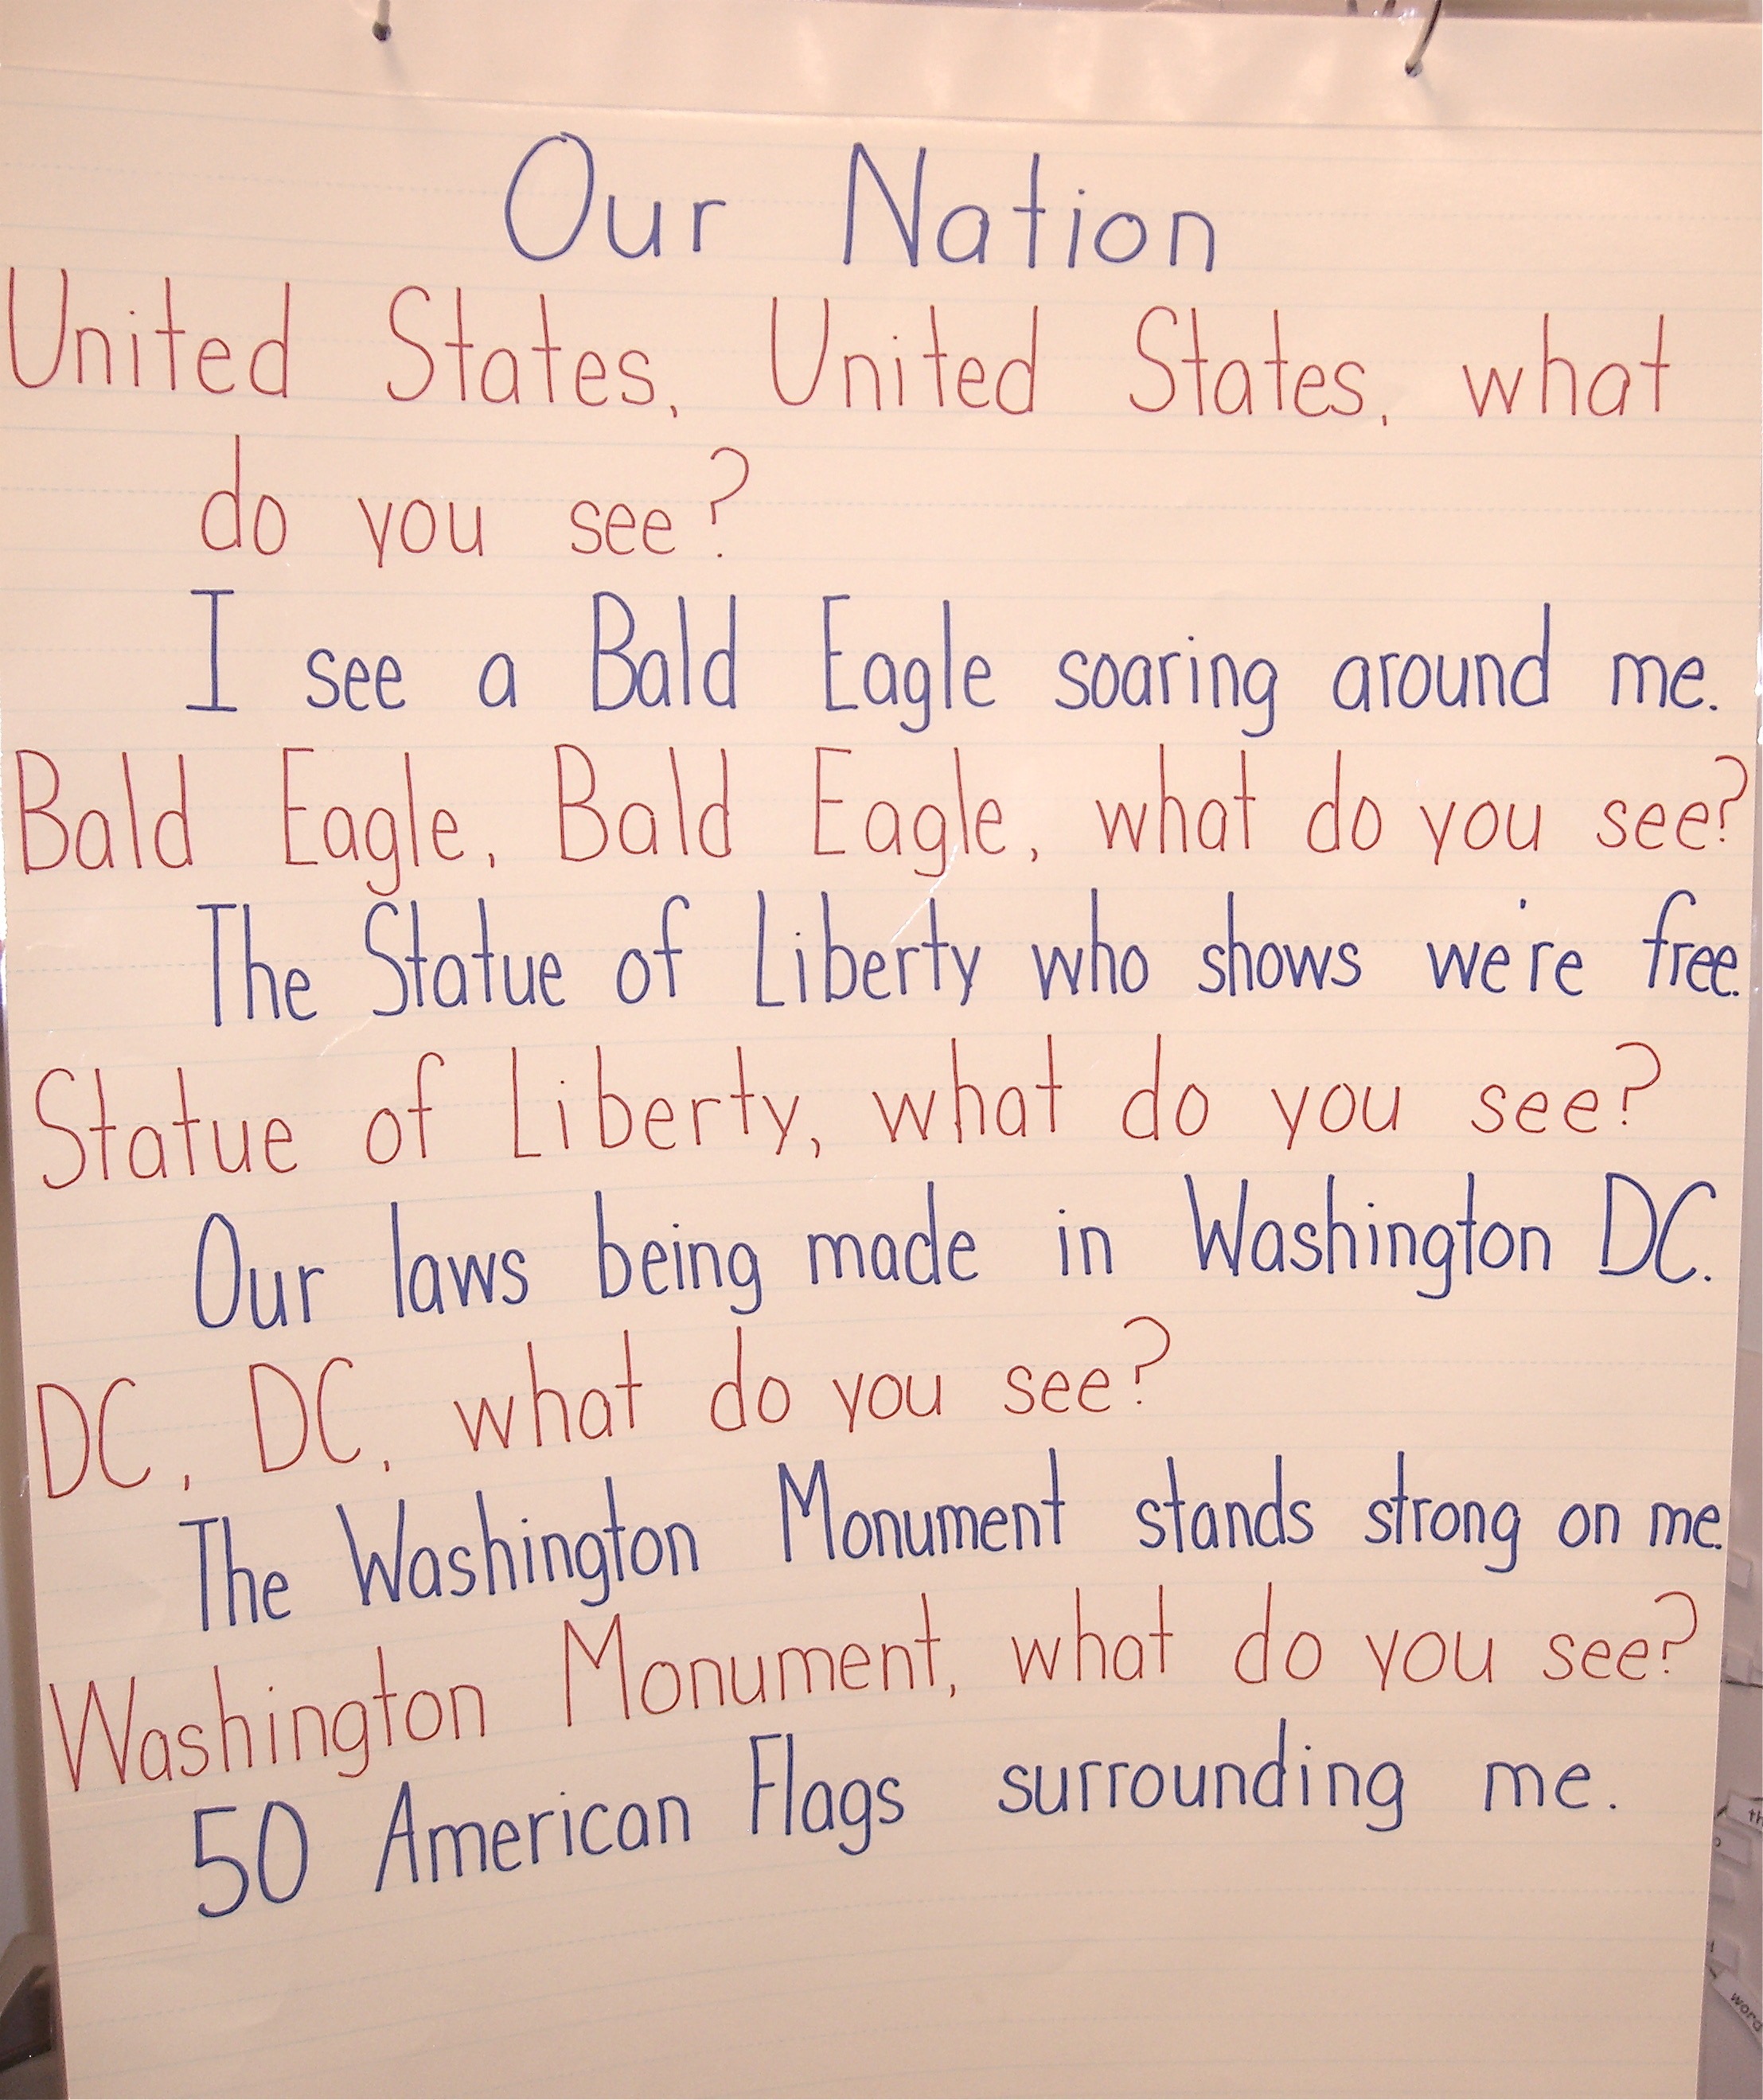 Our Nation
United States, United States, what
do you see?
I see a Bald Eagle soaring around me.
Bald Eagle, Bald Eagle, what do you see?
The Statue of Liberty who shows we're free.
Statue of Liberty, what do you see?
Our laws being made in Washington DC.
DC, DC, what do you see?
The Washington Monument stands strong on me.
Washington Monument, what do you see?
50 American Flags surrounding me.